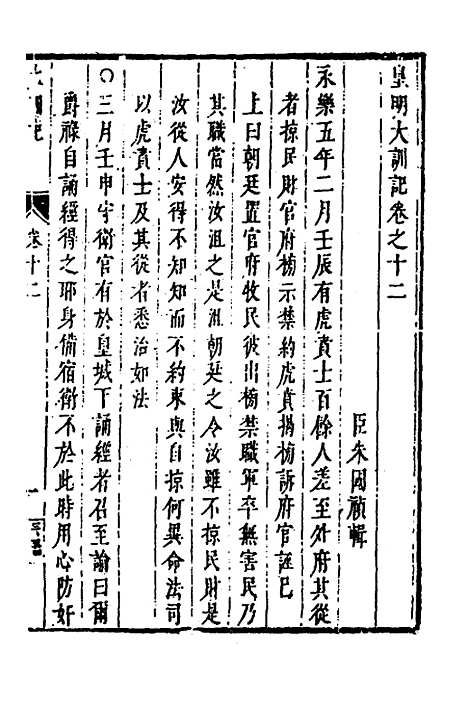 皇明大訓記卷之十二
臣朱國禎輯
永樂五年二月壬辰有虎賁士百餘人差至外府其從
者掠民財官府榜示禁約虎賁揭榜訴府官誣已
上曰朝廷置官府牧民彼出榜禁職軍卒無害民乃
其職當然汝沮之是沮朝廷之令汝雖不掠民財是
汝從人安得不知知而不約束與自掠何異命法司
以虎賁士及其從者悉治如法
○三月壬申守衛官有於皇城下誦經者召至諭曰爾
爵祿自誦經得之耶身備宿衛不於此時用心防奸
卷十二